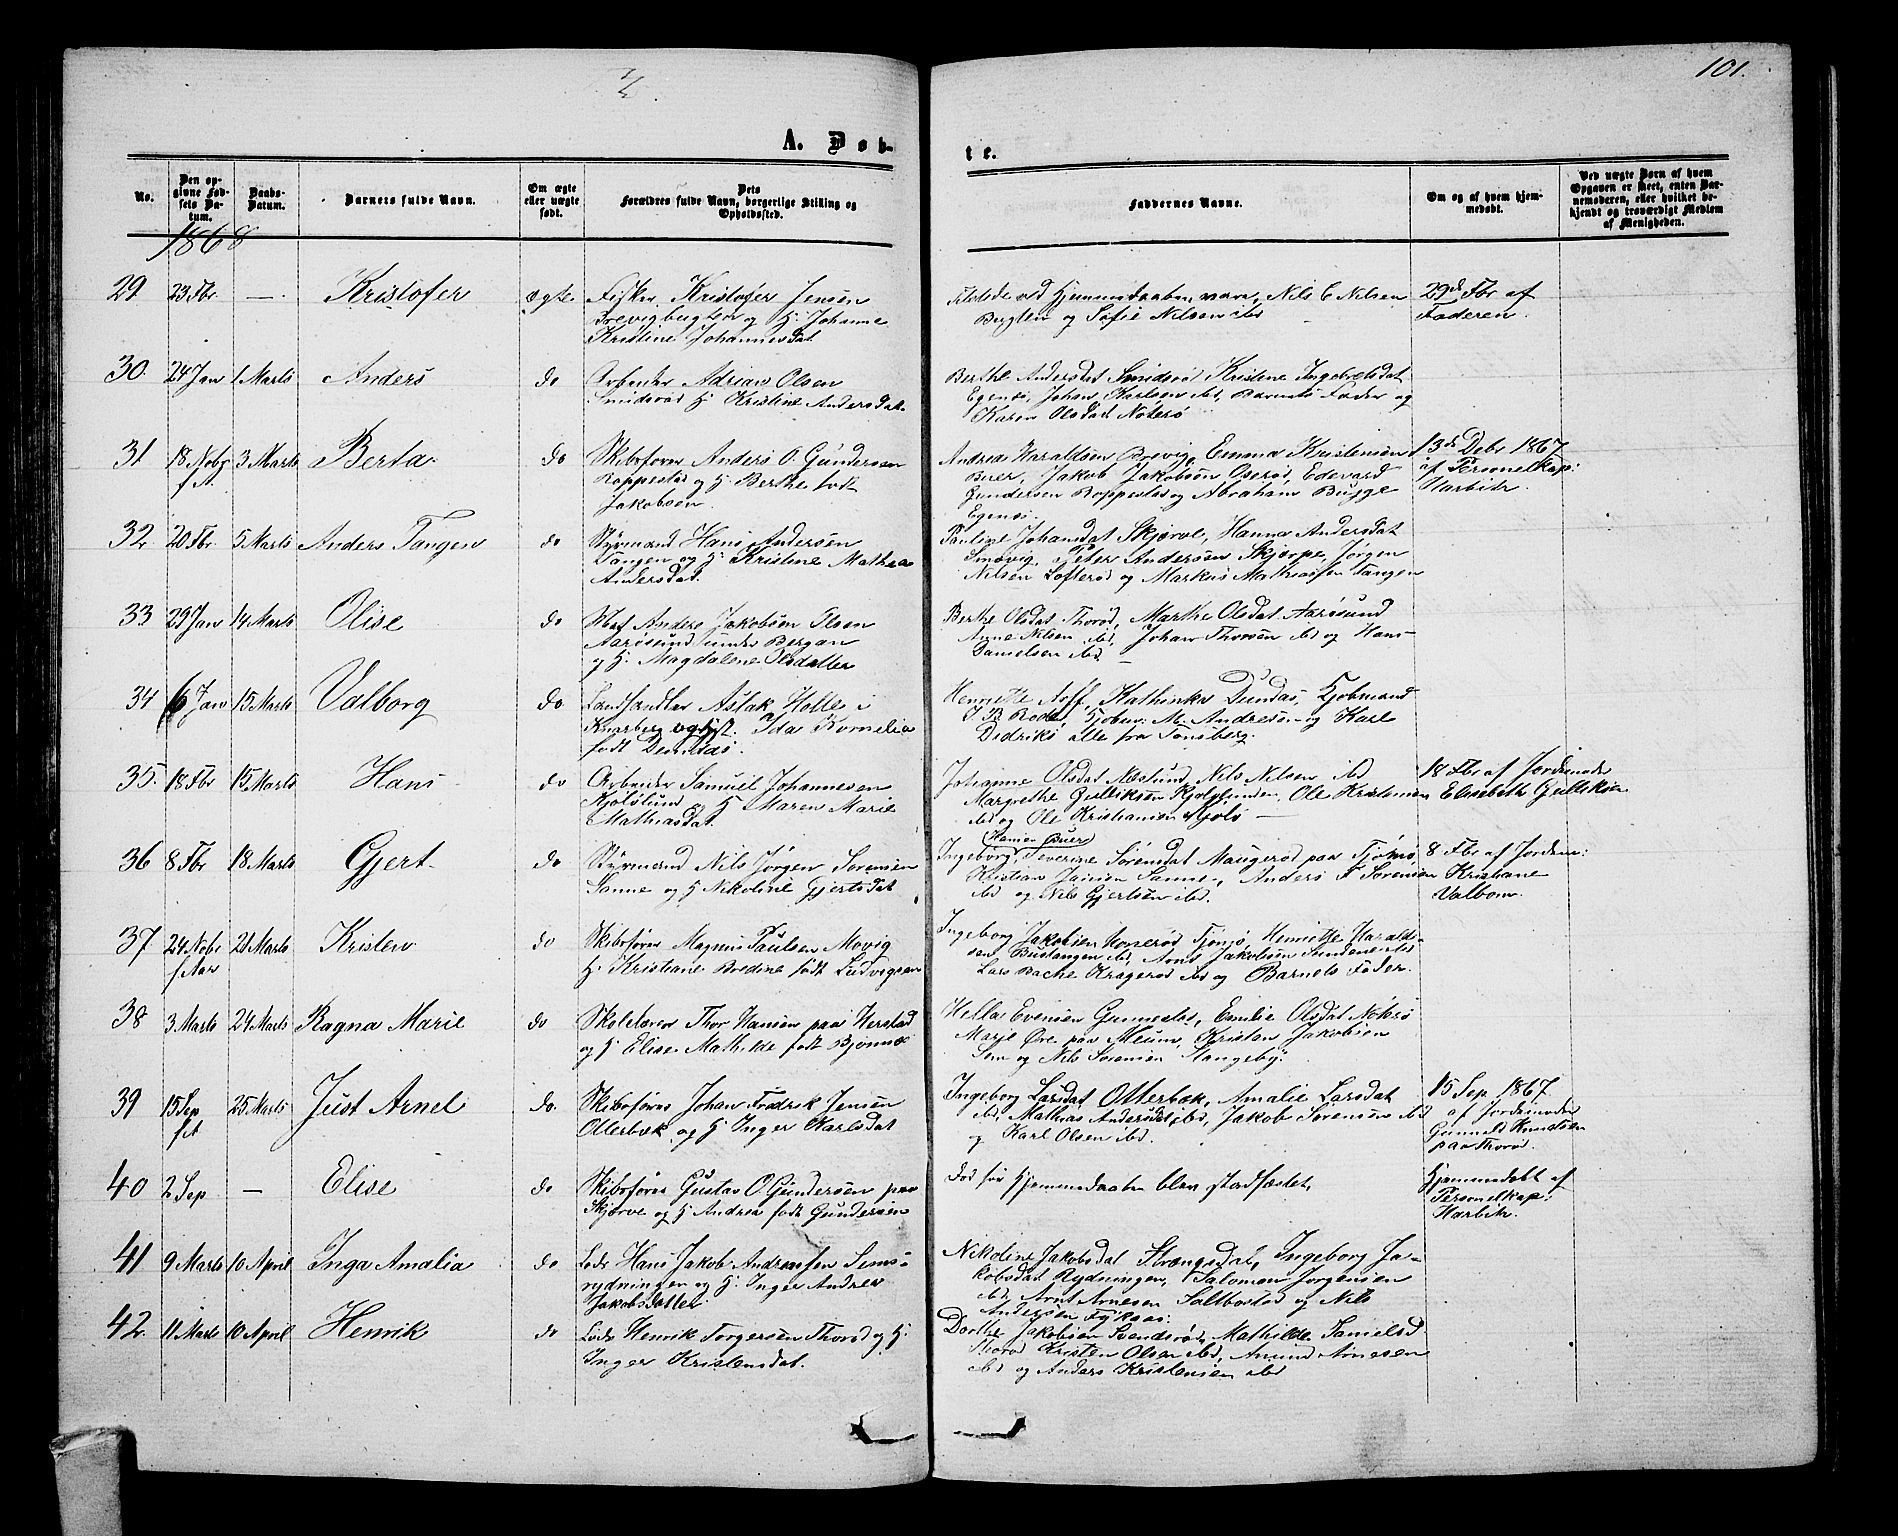 101.
A. Døb-
te.
No.
Den op-
givne Fød-
sels Da-
tum.
Daabs-
Datum.
Barnets fulde Navn.
Om ægte
eller uægte
født.
Dets
Forældres fulde Navn, borgerlige Stilling og
Opholdssted.
Faddernes Navne.
Om og af hvem hjem-
medøbt.
Ved uægte Børn af hvem
Opgaven er skeet, enten Bar-
nemoderen, eller hvilket be-
kjendt og troværdigt Medlem
af Menigheden.
1868
29 23 Fbr — Kristofer ægte Fisker Kristofer Jensen
Trevigbugten og H. Johanne
Kristine Johannesdat
Tilstede ved Hjemmedaaben vare, Nils C Nilsen
Bugten og Sofie Nilsen ibd
29de Fbr af
Faderen.
30. 24 Jan 1 Marts Anders do Arbeider Adrian Olsen
Smidsrød H. Kristine Andersdat.
Berthe Andersdat Smidsrød Kristine Ingebretsdat
Egenes, Johan Karlsen ibd, Barnets Fader og
Karen Olsdat Noterø
31 18 Nobr 3 Marts Berta do Skibsfører Anders O. Gundersen
f A
Roppestad og H. Berthe født
Jakobsen.
Andrea Haraldsen Brevig, Emma Kristensen
Beer, Jakob Jakobsen Oserød, Edevard
Gundersen Roppestad og Abraham Bugge
Egenes.
13de Debr 1867
af Personelkap:
Harbitz.
32 20 Fbr. 5 Marts Anders Tangen do Styrmand Hans Andersen
Tangen og H. Kristine Mathea
Andersdat.
Pauline Johansdat Skjærve, Hanna Andersdat
Smøvig, Peter Andersen Skjerpe, Jørgen
Nilsen Lofterød og Markus Mathiassen Tangen
33 29 Jan 14 Marts Olise do Mat Anders Jakobsen Olsen
Aarøsund under Bergan
og H. Magdalene Olsdatter
Berthe Olsdat Thorød, Marthe Olsdat Aarøsund
Anne Nilsen ibd, Johan Thorsen ibd og Hans
Danielsen ibd
34 6 Jan 15 Marts Valborg do Landhandler Aslak Holte i
Knarberg og Hst. Ida Kornelia
født Dundas.
Henriette Aoff, Kathinka Dundas, Kjøbmand
J B Rode, Kjøbm. M. Andresen og Karl
Dedriks alle fra Tønsberg.
35. 18 Fbr 15 Marts Hans do Arbeider Samuel Johannesen
Kjøløsund og H Maren Marie
Mathiasdat.
Johanne Olsdat Næsund, Nils Nilsen ibd
Margrethe Gulliksen Kjøløsundet, Ole Kristensen
ibd og Ole Kristiansen Kjøle —
18 Fbr af Jordemoder
Elisabeth Gulliksen
36 8 Fbr 18 Marts Gjert do Styrmand Nils Jørgen Sørensen
Sanne og H Nikoline Gjertsdat
Hansen Buer
Ingeborg, Severine Sørensdat Maugerød paa Tjømø,
Kristian Hansen Sanne, Anders F Sørensen
ibd og Nils Gjertsen ibd.
8 Fbr af Jordem:
Kristiane
Valbom.
37 24 Nobr 21 Marts Kristen do Skibsfører Magnus Paulsen Movig
f Aar
H. Kristiane Bredine født Ludvigsen
Ingeborg Jakobsen Honerød Tjømø, Henriette Harald-
sen Bustangen ibd, Arnt Jakobsen Sundene ibd
Lars Bache Kragerød ibd og Barnets Fader.
38 3 Marts 24 Marts Ragna Marie do Skolelærer Thor Hansen paa Herstad
og H Elise Mathilde født Bjønnes
Hella Evensen Gunnestad, Emilie Olsdat Nøterø
Marie Øre paa Meum, Kristen Jakobsen
Sem og Nils Sørensen Stangeby.
39 15 Sep 25 Marts Just Arnel do. Skibsfører Johan Fredrik Jensen
f A
Otterbæk og H. Inger Karlsdat
Ingeborg Larsdat Otterbæk, Amalie Larsdat
ibd, Mathias Andersen ibd, Jakob Sørensen ibd
og Karl Olsen ibd.
15 Sep 1867
af Jordemoder
Gunnild Knudsen
paa Thorød.
40 2 Sep — Elise do Skibsfører Gustav O Gundersen paa
Skjerve og H Andrea født Gundersen
Død før Hjemmedaaben blev stadfæstet.
Hjemmedøbt af
Personelkap:
Harbitz.
41 9 Marts 10 April Inga Amalia do Lods Hans Jakob Andreassen Sems-
rydningen og H. Inger Andrea
Jakobsdatter
Nikoline Jakobsdat Strængsdal, Ingeborg Ja-
kobsdat Rydningen, Salomon Jørgensen
ibd, Arnt Arnesen Saltbostad og Nils
Andersen Fyksaas.
42. 11 Marts 10 April Henrik do Lods Henrik Torgersen Thorød og H.
Inger Kristensdat.
Dorthe Jakobsen Svendsrød, Mathilde Danielsd
Thorød Kristen Olsen ibd, Amund Arnesen
ibd og Anders Kristensen ibd